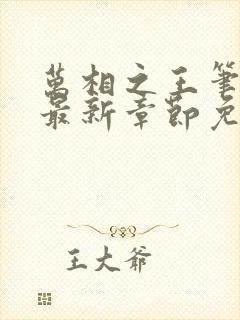 萬相之王筆
最新章節免
王大爺